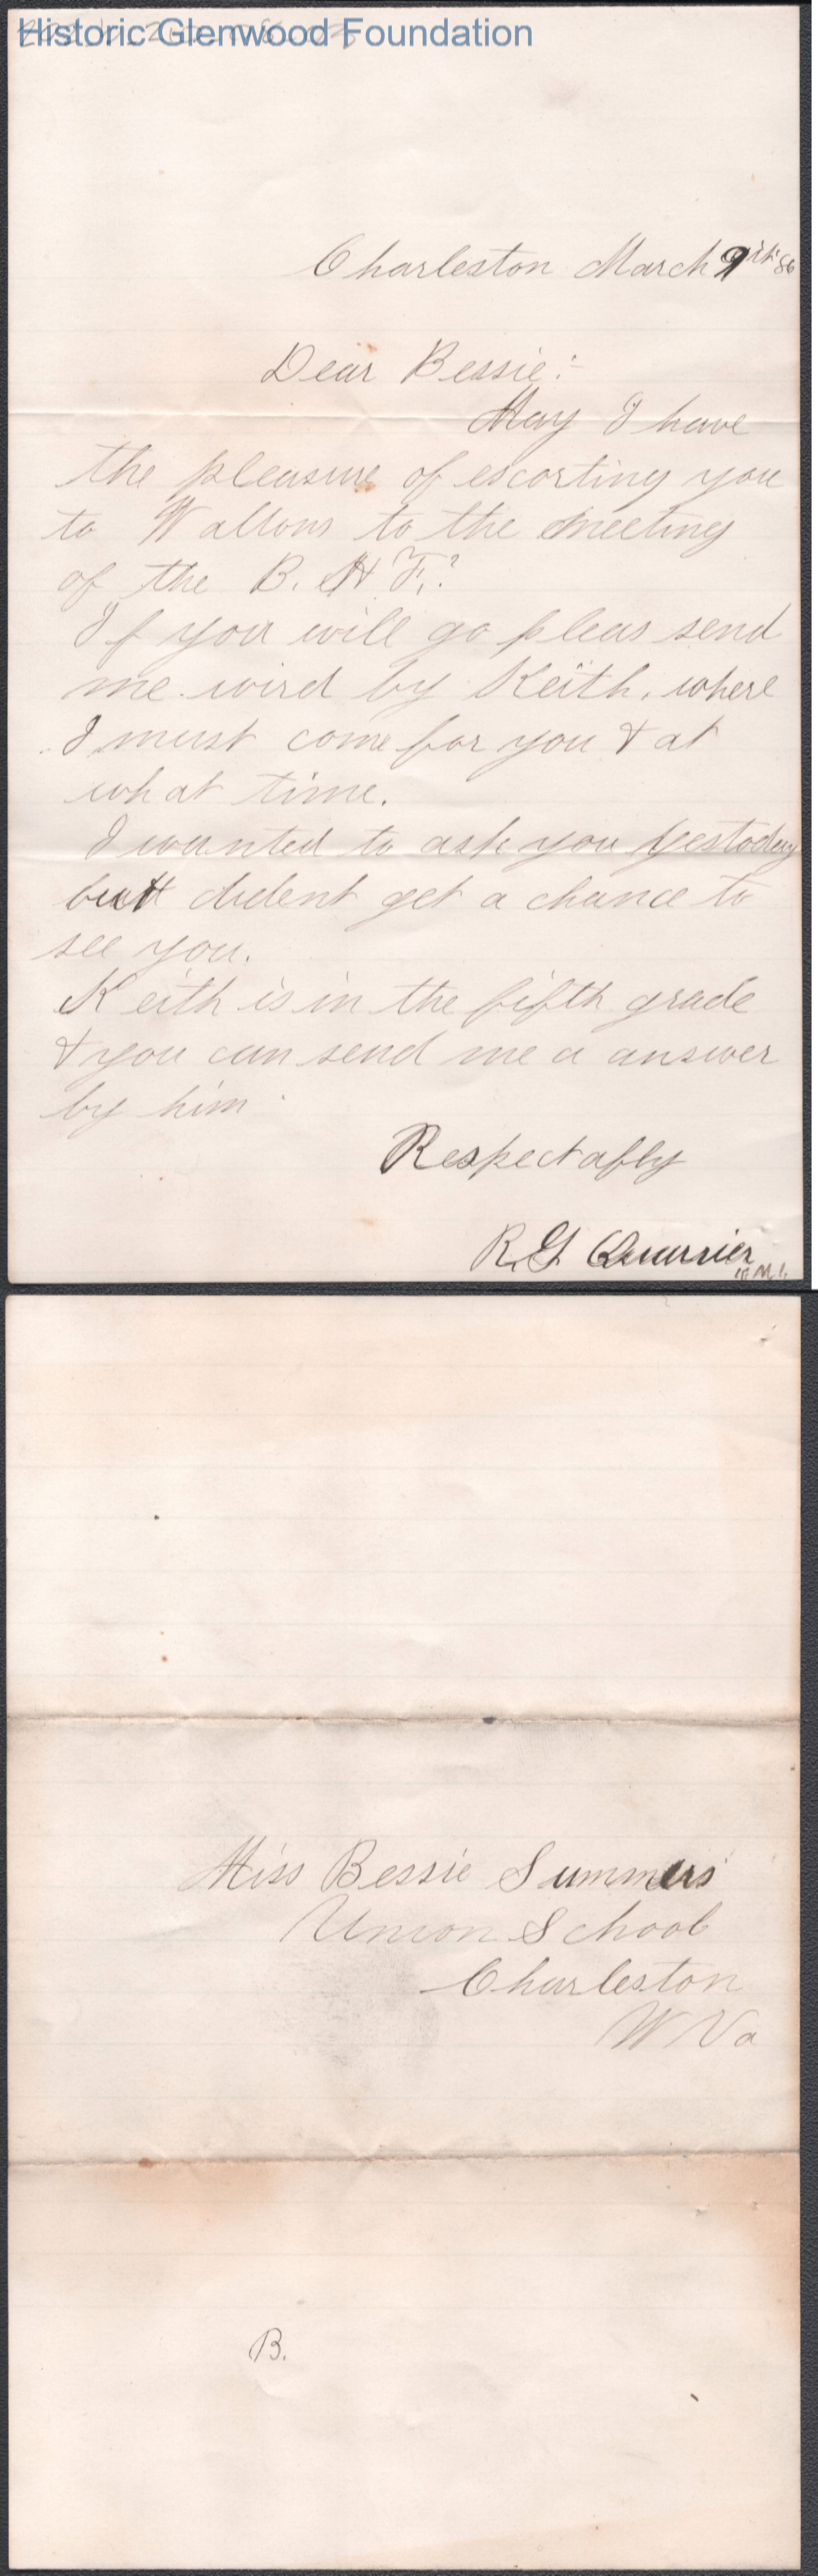 Historic Glenwood Foundation
Charleston March 9th 86
Dear Bessie:-
May I have
the pleasure of escorting you
to Waltons to the meeting
of the B. H F.?
If you will go pleas send
me word by Keith, where
I must come for you & at
what time.
I wanted to ask you yestoday
butt dident get a chance to
see you.
Keith is in the fifth grade
& you can send me a answer
by him.
Respectafly
R. G. Quarrier
Miss Bessie Summers
Union School
Charleston
W Va
B.